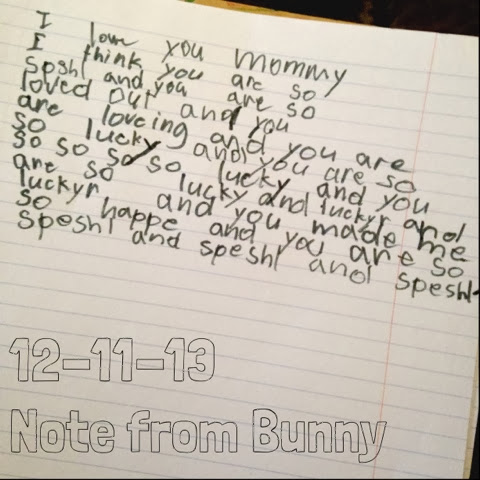 I love you mommy
I think you are so
Spshl and you are so
loved out and you
are loveing and you are
so lucky and you are so
so so so so lucky and you
are so lucky and luckyr and
luckyr and you made me
so happe and you are so
speshl and speshl and speshl
12-11-13
Note from Bunny